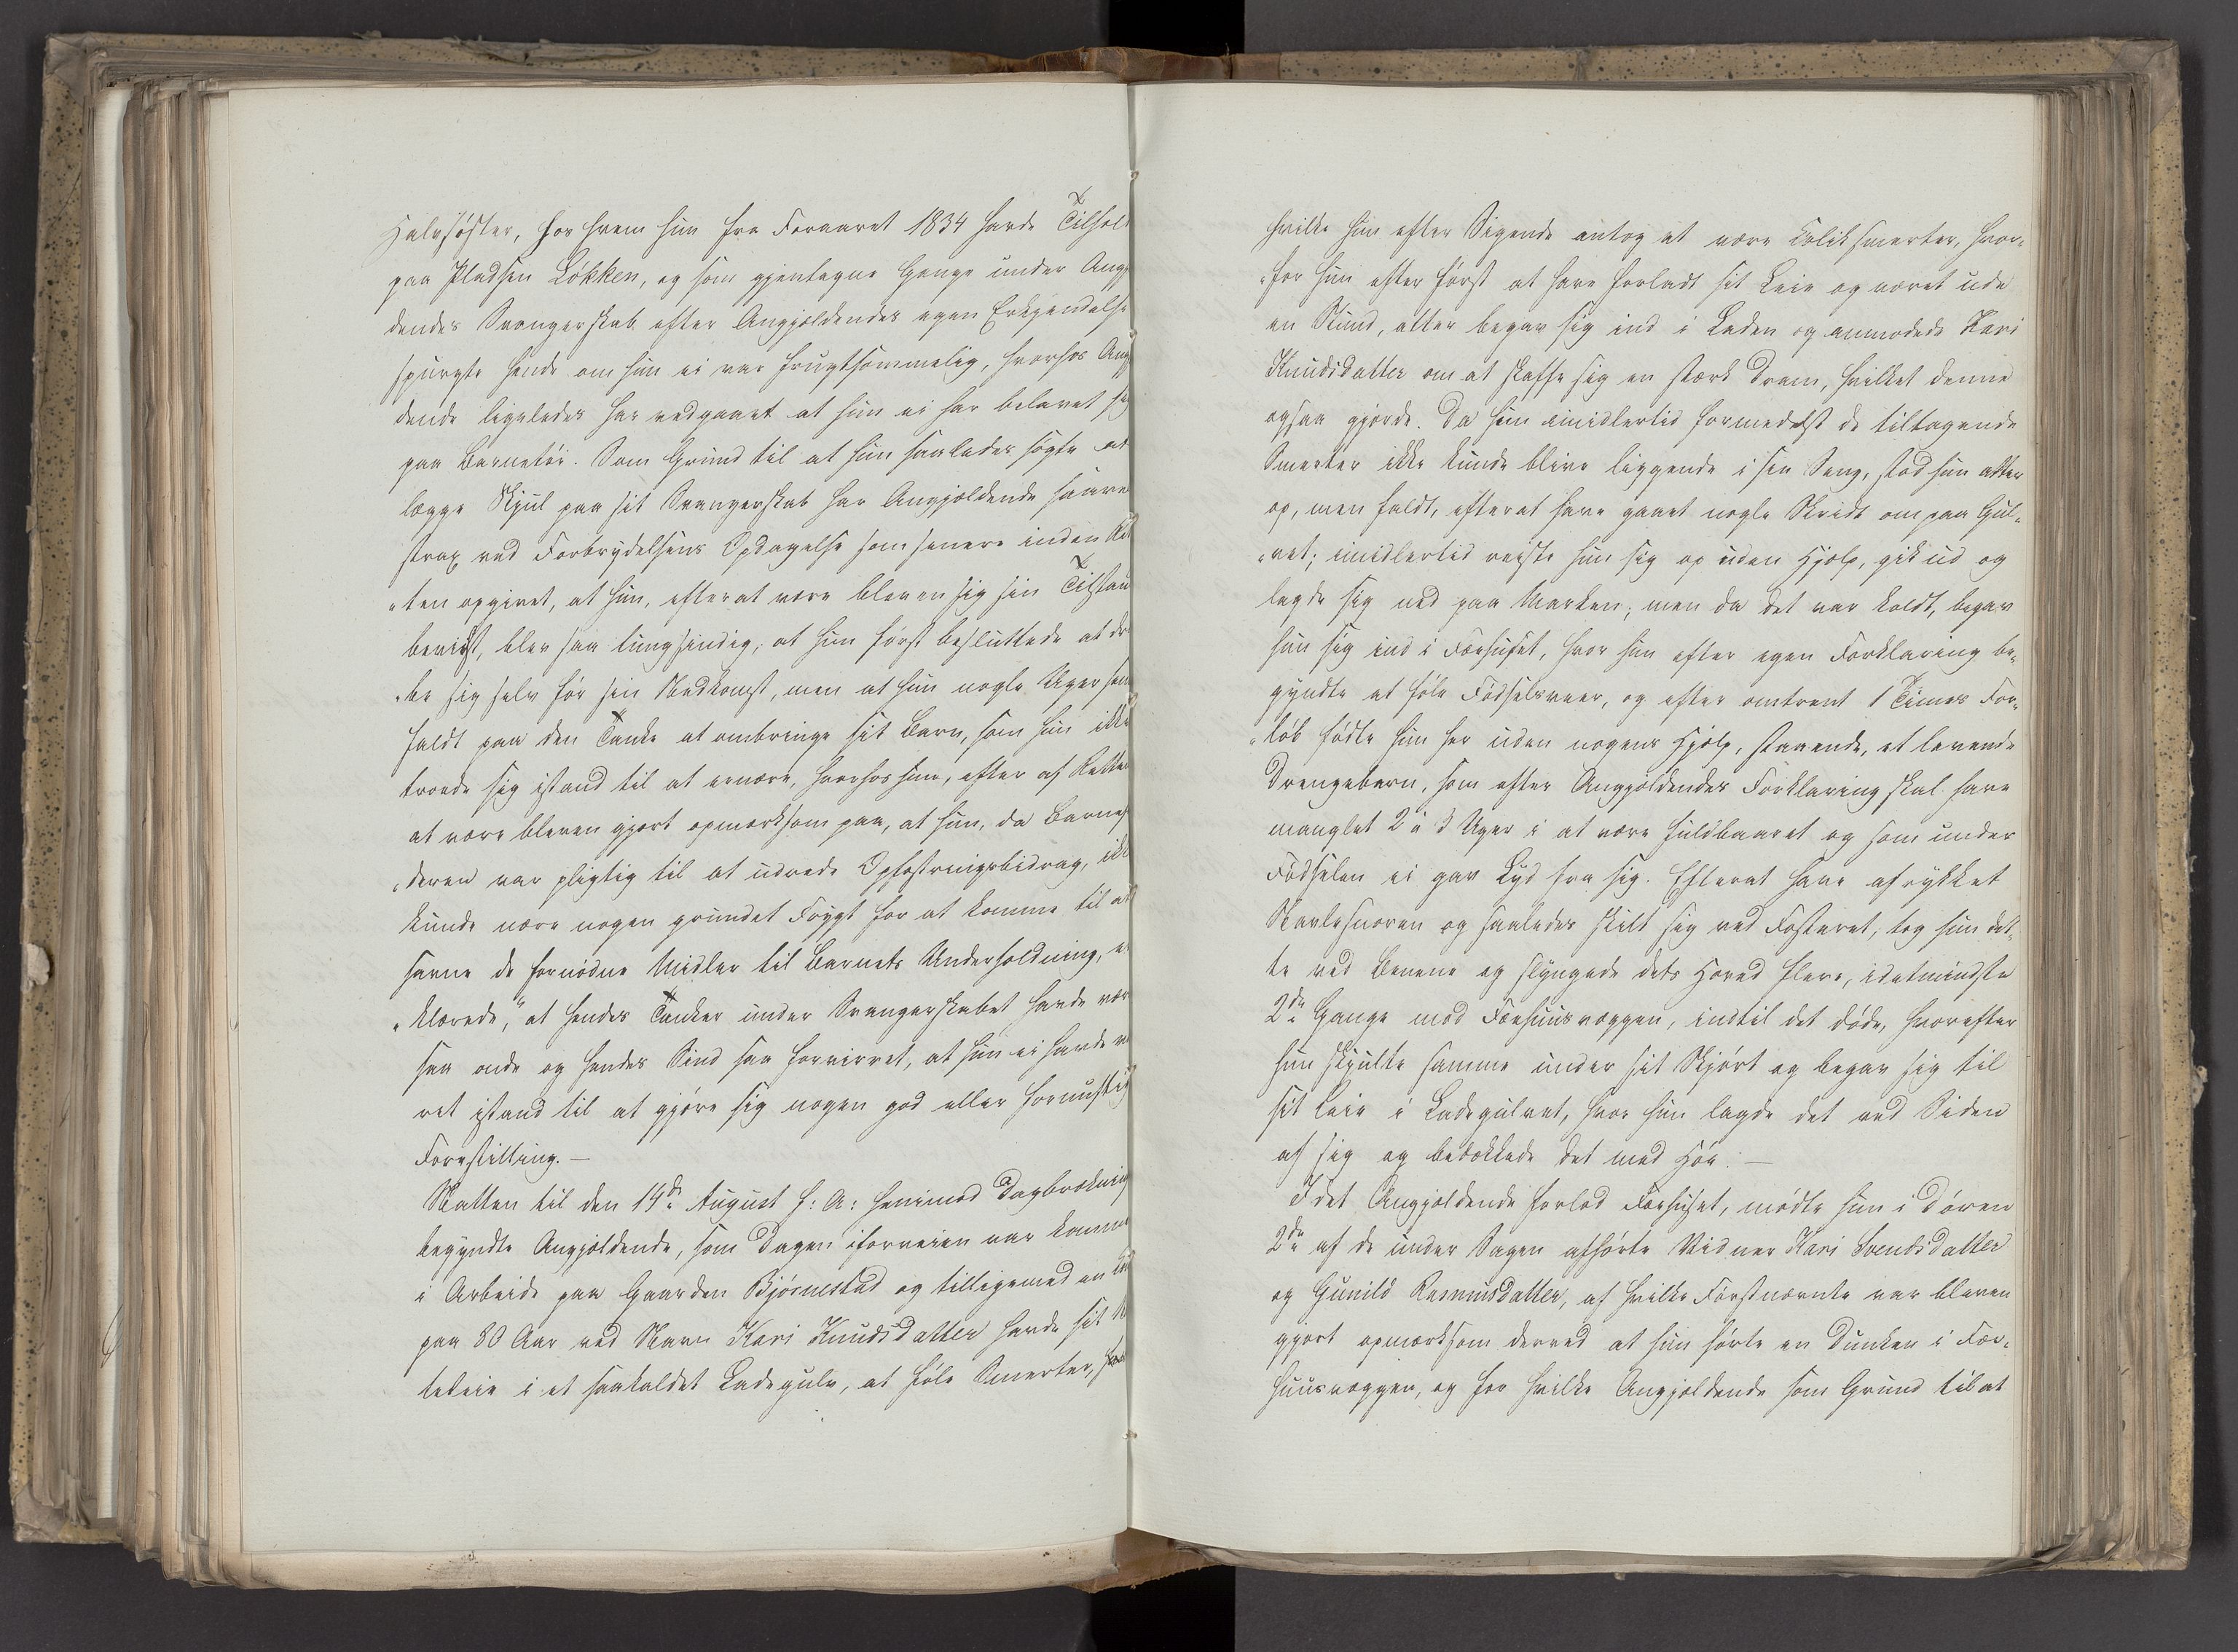 Halvsøster, hos hvem hun fra Foraaret 1834 havde Tilhold
paa Pladsen Løkken, og som gjentagne Gange under Angj
dendes Svangerskab efter Angjældendes egen Erkjendelse
spurgte hende om hun ei var frugtsommelig, hvorhos Angj
dende ligeledes har vedgaaet at hun ei har belavet sig
paa Barnetøi. Som Grund til at hun saaledes søgte at
lægge Skjul paa sit Svangerskab har Angjældende saavel
strax ved Forbrydelsens Opdagelse som senere inden Ret
„ten opgivet, at hun, efterat være bleven sig sin Tilstand
bevidst, blev saa tungsindig, at hun først besluttede at dræ
„be sig selv før sin Nedkomst, men at hun nogle Uger sen
faldt paa den Tanke at ombringe sit Barn, som hun ikke
troede sig istand til at ernære, hvorhos hun, efter af Retten
at være bleven gjort opmærksom paa, at hun, da Barnef
„deren var pligtig til at udrede Opfostringsbidrag, ikke
kunde nære nogen grundet Frygt for at komme til at
savne de fornødne Midler til Barnets Underholdning, er
„klærede, „at hendes Tanker under Svangerskabet havde vær
saa onde og hendes Sind saa forvirret, at hun ei havde væ
ret istand til at gjøre sig nogen god eller fornuftig
Forestilling. —
Natten til den 14de August f: A: henimod Dagbrækning
begyndte Angjældende, som Dagen iforveien var kommen
i Arbeide paa Gaarden Bjørnestad og tilligemed en
paa 80 Aar ved Navn Kari Knudsdatter havde sit N
teleie i et saakaldet Ladegulv, at føle Smerter,
hvilke hun efter Sigende antog at være Coliksmerter, hvor„
„for hun efter først at have forladt sit Leie og været ude
en Stund, atter begav sig ind i Laden og anmodede Kari
Knudsdatter om at skaffe sig en stærk Dram, hvilket denne
ogsaa gjorde. Da hun imidlertid formedelst de tiltagende
Smerter ikke kunde blive liggende i sin Seng, stod hun atter
op, men faldt, efterat have gaaet nogle Skridt om paa Gul„
„vet; imidlertid reiste hun sig op uden Hjælp, gik ud og
lagde sig ned paa Marken; men da det var koldt, begav
hun sig ind i Fæhuset, hvor hun efter egen Forklaring be„
gyndte at føle Fødselsveer, og efter omtrent 1 Times For„
„løb fødte hun her uden nogens Hjælp, staaende, et levende
Drengebarn, som efter Angjældendes Forklaring skal have
manglet 2 à 3 Uger i at være fuldbaaret og som under
Fødselen ei gav Lyd fra sig. Efterat have afrykket
Navlesnoren og saaledes skilt sig ved Fosteret, tog hun det„
te ved Benene og slyngede dets Hoved flere, idetmindste
2de Gange mod Fæhuusvæggen, indtil det døde, hvorefter
hun skjulte samme under sit Skjørt og begav sig til
sit Leie i Ladegulvet, hvor hun lagde det ved Siden
af sig og bedækkede det med Høe. —
Idet Angjældende forlod Fæhuset, mødte hun i Døren
2de af de under Sagen afhørte Vidner Kari Svendsdatter
og Gunild Rasmusdatter, af hvilke Førstnævnte var bleven
gjort opmærksom derved at hun hørte en Dunken i Fæ„
huusvæggen, og for hvilke Angjældende som Grund til at